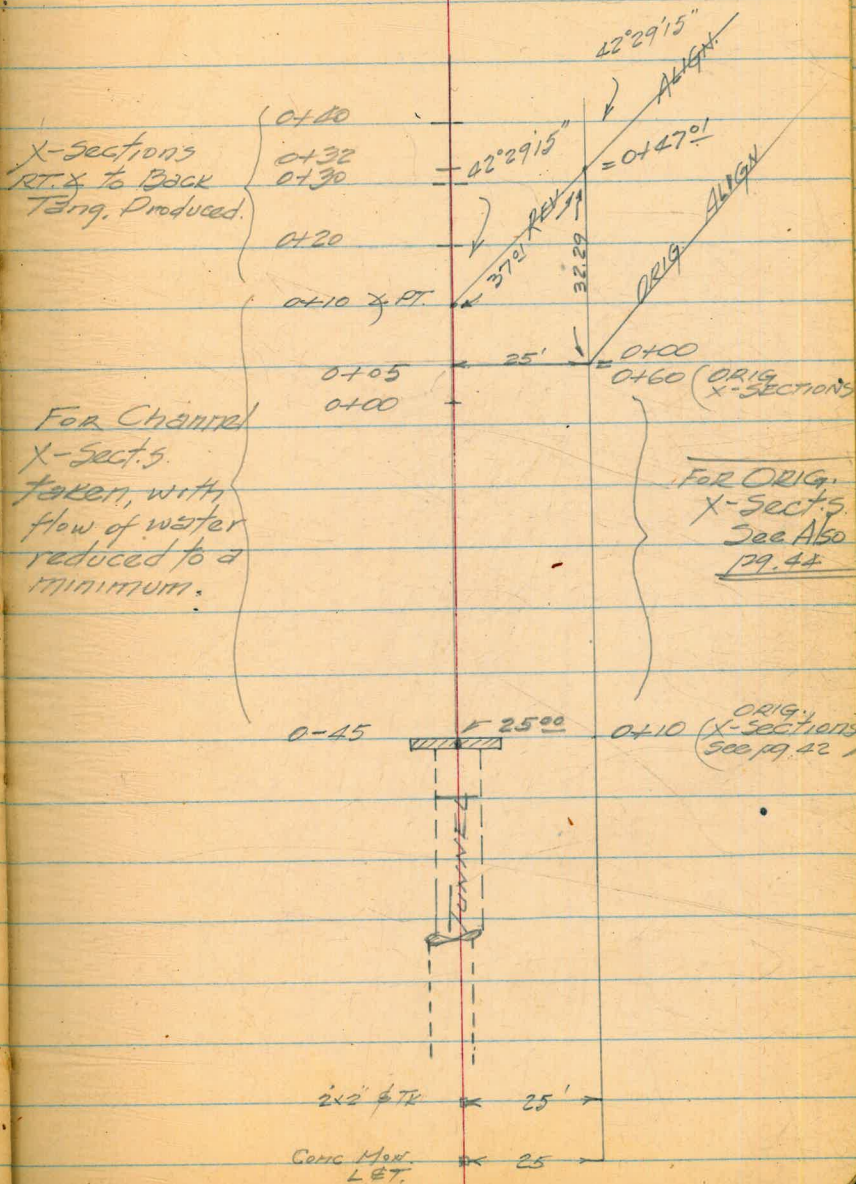 42°29'15"
ALIGN.
0+40
X-Sections
RT. ∠ to Back
Tang. Produced.
0+32
0+30
0+20
42°29'15"
= 0+47.01
37.01 REV.
32.29
ORIG. ALIGN
0+10 ∠ PT.
25'
0+00
= 0+60 (ORIG
X-SECTIONS
0+05
0+00
For Channel
X-Sect.s.
taken, with
flow of water
reduced to a
minimum.
FOR ORIG.
X-Sect.s.
See Also
pg. 44
0-45
25.00
0+10 (ORIG.
X-Sections
See pg. 42)
TUNNEL
2x2" & TK
25'
Conc Mon.
L&T.
25